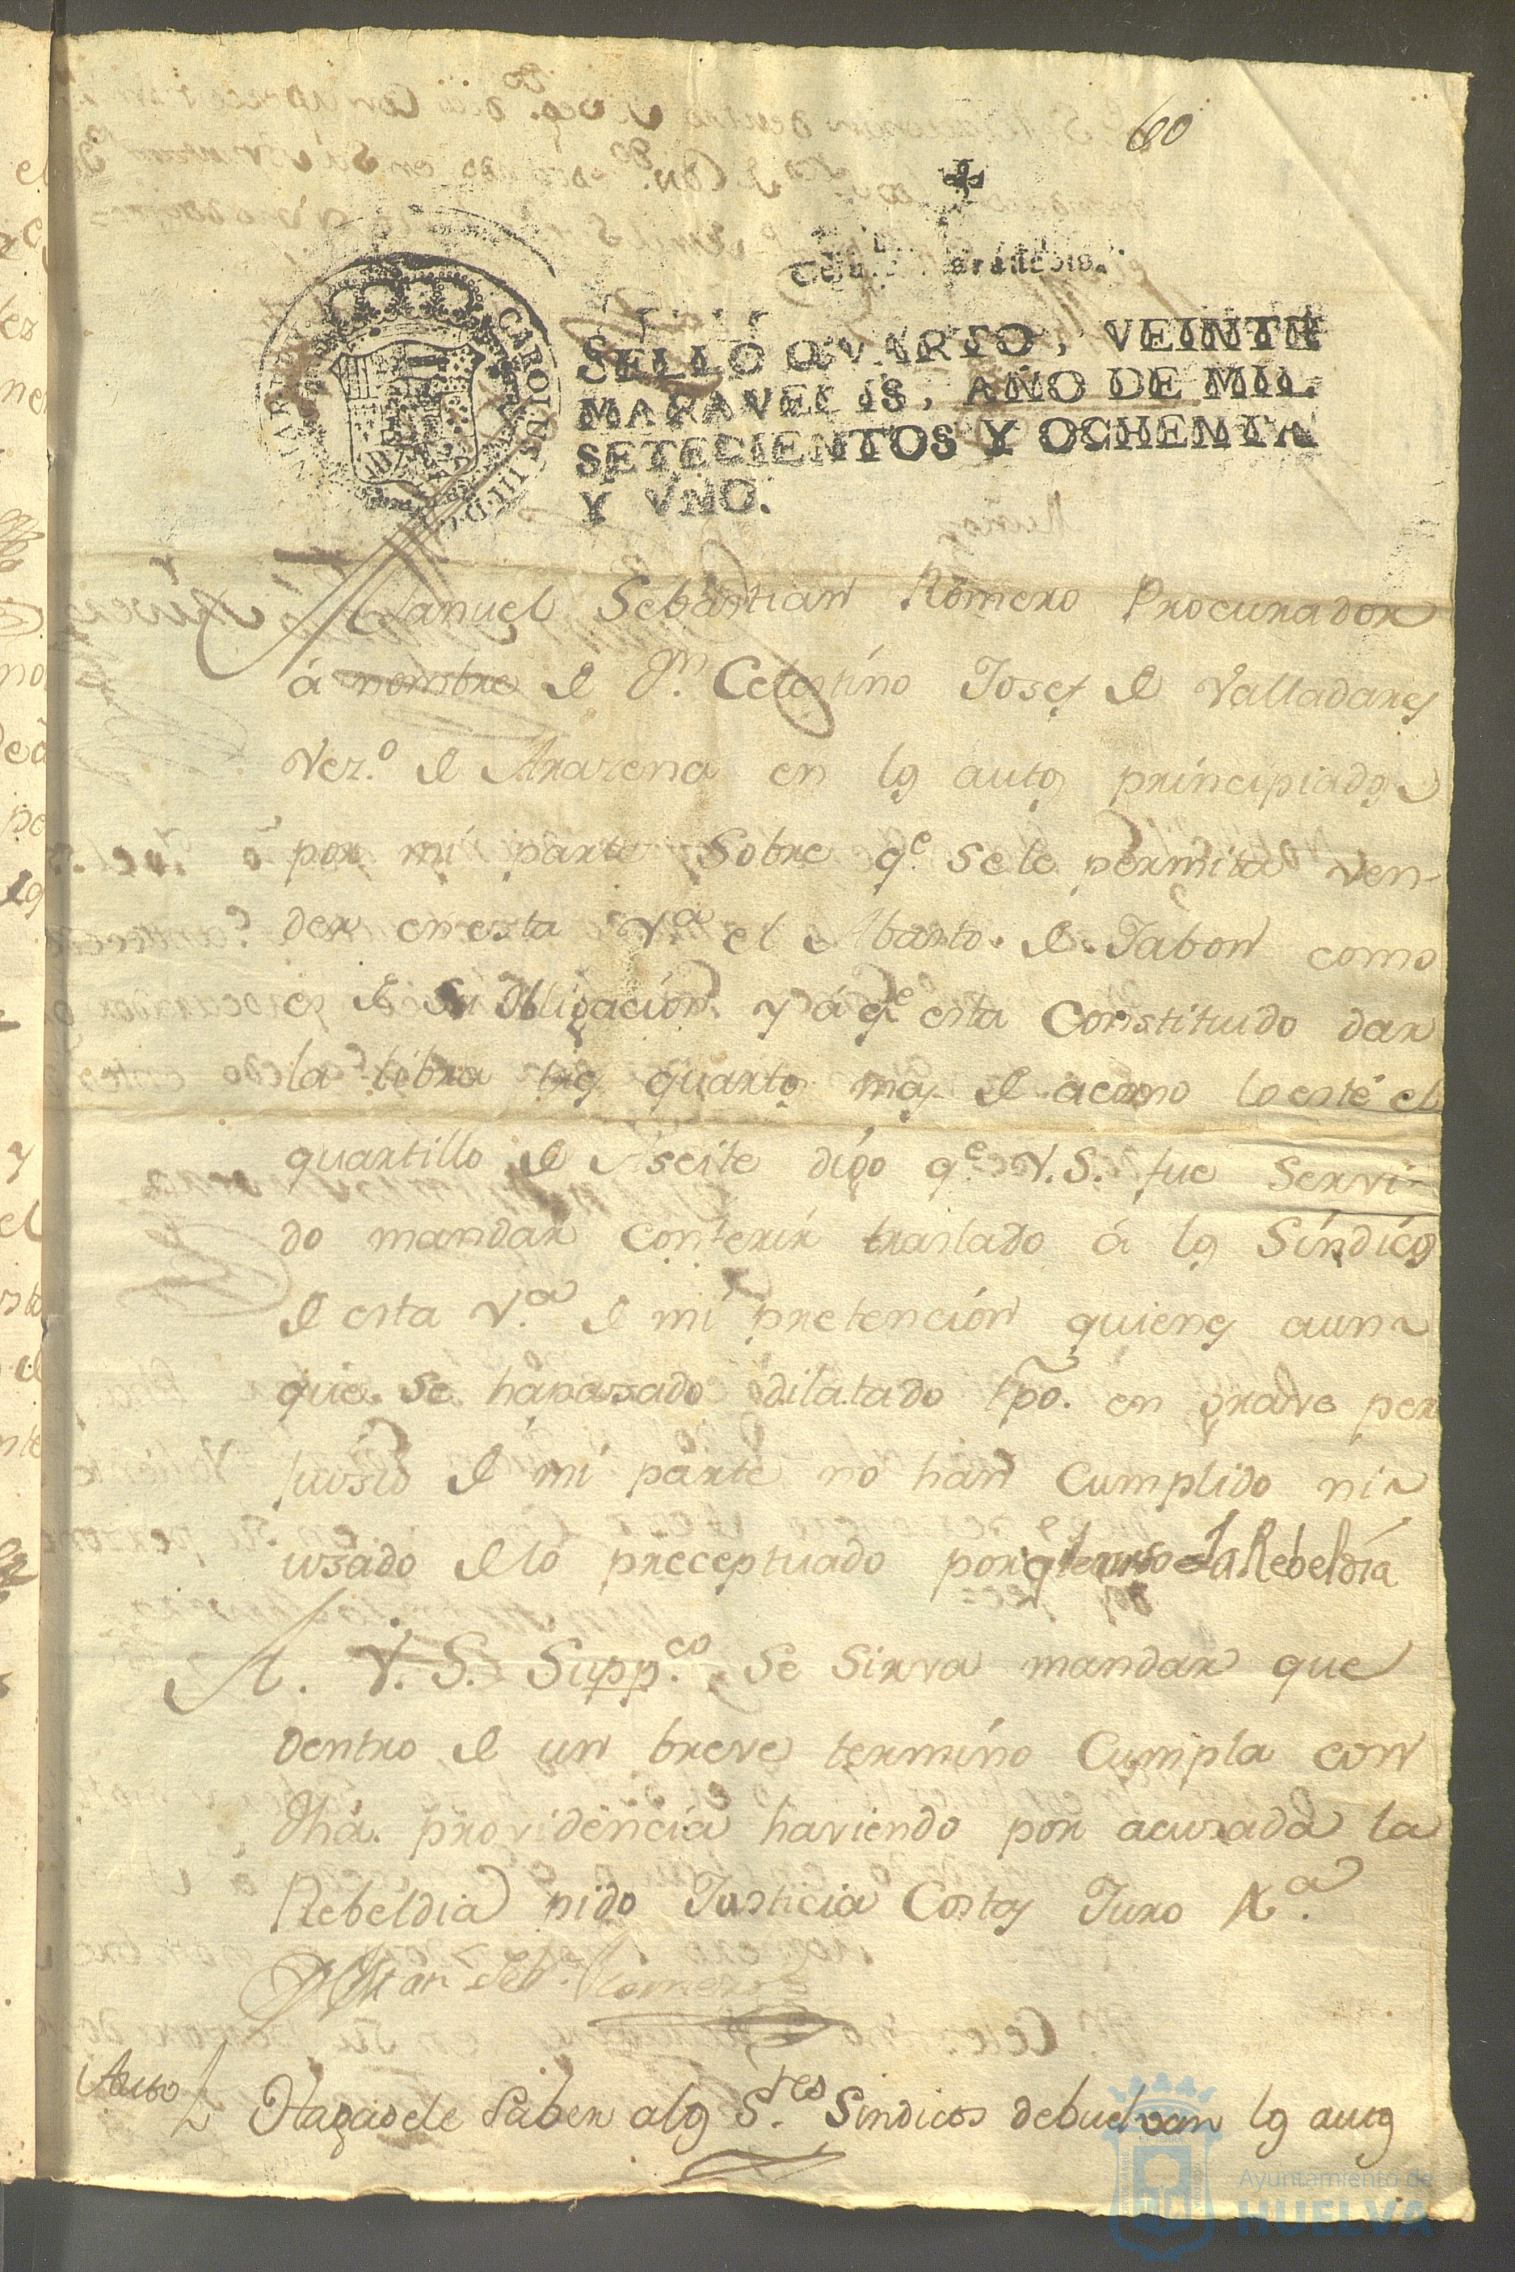 60
SELLO QVARTO, VEINTE
MARAVEDIS, AÑO DE MIL
SETECIENTOS Y OCHENTA
Y VNO.
CAROLUS III D.G.
Manuel Sebastian Romero Procurador
á nombre de Dn. Celestino Josef de Valladares
Vez.o de Arazena en los autos principiados
por mi parte sobre qe. se le permita ven-
der en esta Va. el Abasto de Jabon como
es de su obligacion y á qe esta Constituido dar
la libra tres quartos mas de acomo lo esté el
quartillo de Aseite digo qe. V.S. fue servi-
do mandar conferir traslado á los Síndicos
de esta V.a de mi pretencion quienes aun-
que se ha pasado dilatado tpõ. en grave per
juisio de mi parte no han cumplido ni
usado de lo preceptuado por qe la Rebeldía
A. V. S. Supp.co se sirva mandar que
dentro de un breve termino Cumpla con
dha. providencia haviendo por acusada la
Rebeldia pido Justicia Costas Juro &a.
Man Seb.n Romero
Auto Hagasele saber a los S.res Sindicos debuelvan los autos
Ayuntamiento de
HUELVA